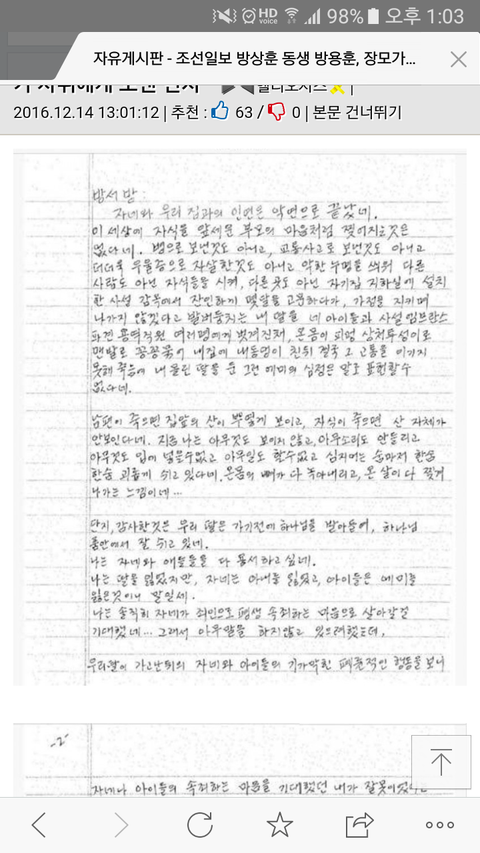 98% 오후 1:03
자유게시판 - 조선일보 방상훈 동생 방용훈, 장모가...
2016.12.14 13:01:12 | 추천 : 63 / 0 | 본문 건너뛰기
방서방:
자네와 우리 집과의 인연은 악연으로 끝났네.
이 세상에 자식을 앞세운 부모의 마음처럼 찢어지는것은
없다네. 병으로 보낸것도 아니고, 교통사고로 보낸것도 아니고
더더욱 우울증으로 자살한것도 아니고 악한 누명을 씌워 다른
사람도 아닌 자식들을 시켜, 다른곳도 아닌 자기집 지하실에 설치
한 사설 감옥에서 잔인하게 몇달을 고문하다가, 가정을 지키며
나가지 않겠다고 발버둥치는 내 딸을 네 아이들과 사설 엠뷸란스
파견 용역직원 여러명에게 벗겨진채, 온몸이 피멍 상처투성이로
맨발로 꽁꽁묶어 내집에 내동댕이 친뒤 결국 그 고통을 이기지
못해 죽음에 내몰린 딸을 둔 그런 에미의 심정은 말로 표현할수
없다네.
남편이 죽으면 집앞의 산이 뿌옇게 보이고, 자식이 죽으면 산 자체가
안보인다네. 지금 나는 아무것도 보이지 않고, 아무소리도 안들리고
아무것도 입에 넣을수없고 아무일도 할수없고 심지어는 숨마저 한숨
한숨 괴롭게 쉬고 있다네. 온몸의 뼈가 다 녹아내리고, 온 살이 다 찢겨
나가는 느낌이네...
단지, 감사한것은 우리 딸은 가기전에 하나님을 받아들여, 하나님
품안에서 잘 쉬고 있네.
나는 자네와 애들을 다 용서하고 싶네.
나는 딸을 잃었지만, 자네는 아내를 잃었고, 아이들은 에미를
잃은것이니 말일세.
나는 솔직히 자네가 죄인으로 평생 속죄하는 마음으로 살아갈걸
기대했네... 그래서 아무말을 하지않고 있으려했는데.
우리딸이 가고난뒤의 자네와 아이들의 기가막힌 패륜적인 행동을 보니
-2-
자네나 아이들의 속죄하는 마음을 기대했던 내가